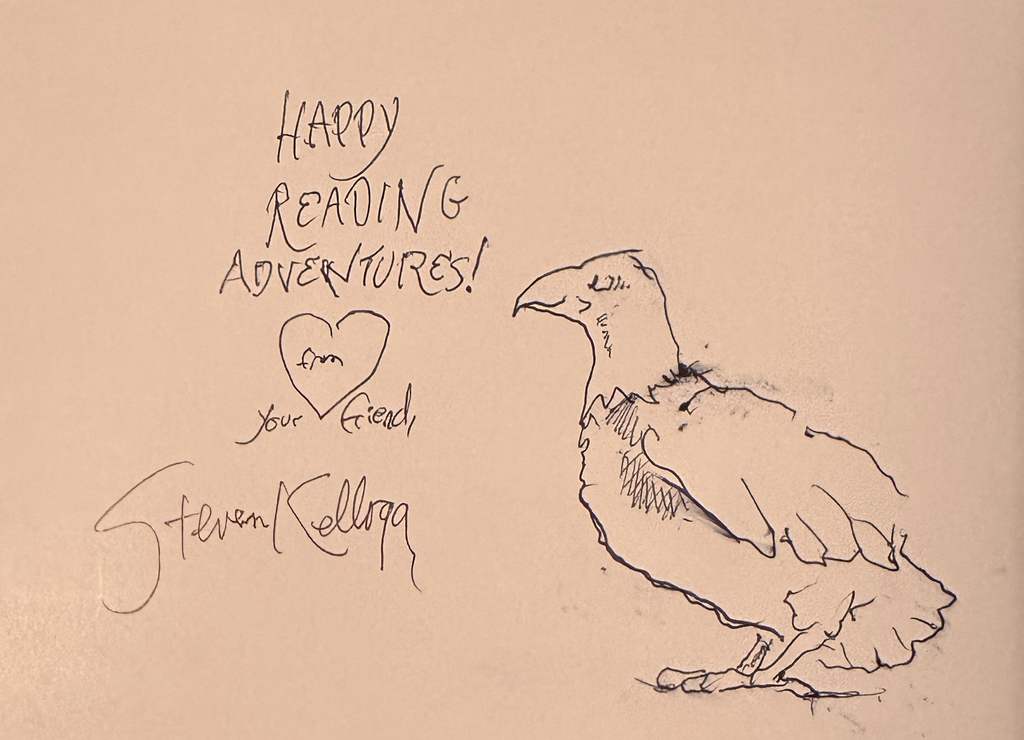 HAPPY
READING
ADVENTURES!
from
your friend,
Steven Kellogg